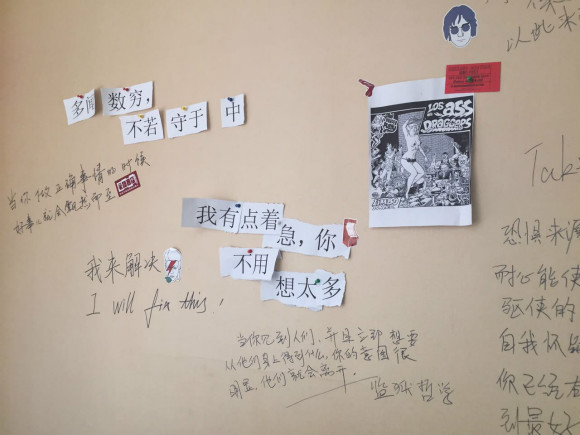 以此来
多闻数穷，
不若守于中
当你做正确事情的时候
好事就会自然而至
LOS
ASS
DRAGGERS
Tak
我有点着
急，你
不用
想太多
我来解决
I will fix this!
恐惧来源
耐心能使
驱使的
自我怀疑
你已经在
到最好
当你见到人们，并且立即想要
从他们身上得到什么，你的意图很
明显，他们就会离开。
监狱哲学